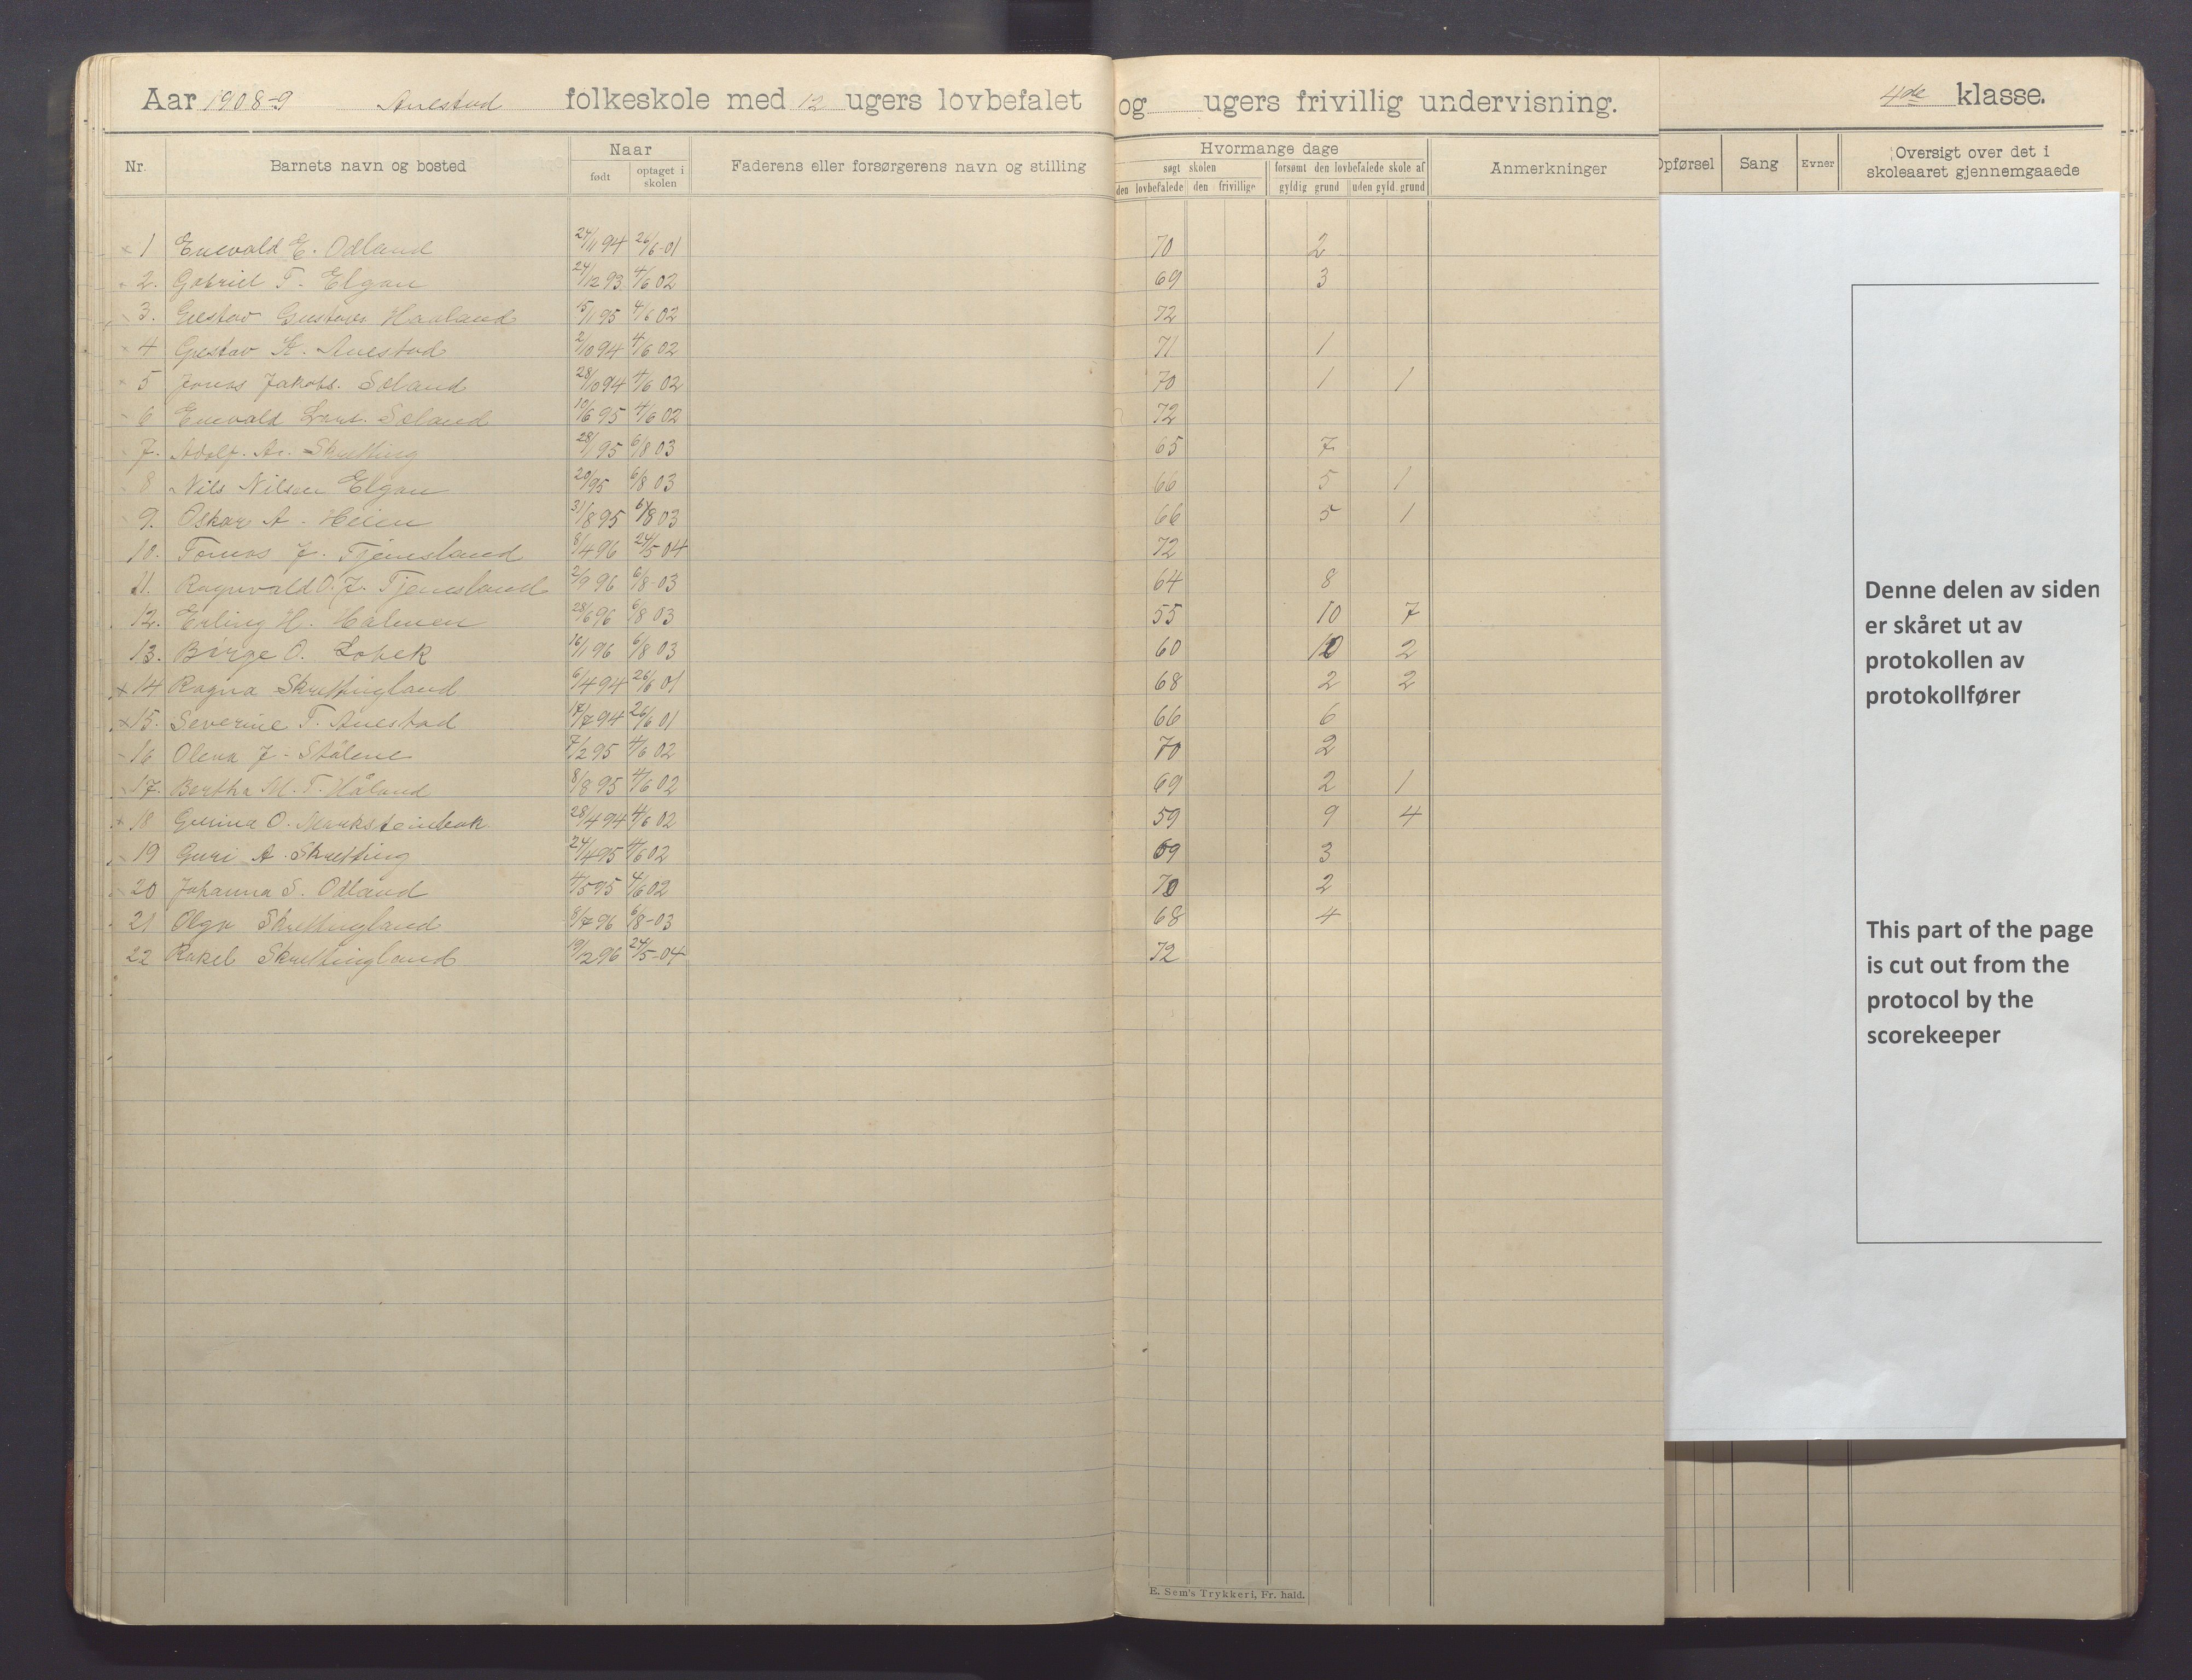 Aar 1908-9 Auestad folkeskole med 12 ugers lovbefalet og ugers frivillig undervisning. 4de klasse.
Nr. Barnets navn og bosted Naar født optaget i skolen Faderens eller forsørgerens navn og stilling Hvormange dage søgt skolen den lovbefalede den frivillige forsømt den lovbefalede skole af gyldig grund uden gyld. grund Anmerkninger Opførsel Sang Evner Oversigt over det i skoleaaret gjennemgaaede
1 Enevald E. Odland 24/11 94 26/6-01 70 2
2. Gabriel T. Elgan 24/12 93. 4/6 02 69 3
3. Gustav Gustavs. Haaland 15/1 95 4/6 02 72
4 Gustav K. Auestad 2/10 94 4/6 02 71 1
5 Jonas Jakobs. Søland 28/10 94 4/6 02 70 1 1
6 Enevald Lars. Søland 10/6 95 4/6 02 72
7. Adolf. Ar. Skretting 28/1 95 6/8 03 65 7
8 Nils Nilsen Elgan 20/95 6/8 03 66 5 1
9. Oskar A. Heien 31/8 95 6/8 03 66 5 1
10. Tomas J. Tjemsland 8/4 96 24/5 04 72
11. Ragnvald O. J. Tjemsland 2/9 96 6/8-03 64 8
12. Erling H. Holmen 28/6 96 6/8 03 55 10 7
13. Børge O. Lobek 16/1 96 6/8 03 60 10 2
14 Ragna Skrettingland 6/4 94 26/6 01 68 2 2
15. Severine T. Auestad 17/7 94 26/6 01 66 6
16 Olena J. Stålene 7/2 95 4/6 02 70 2
17. Bertha M. T. Håland 8/8 95 4/6 02 69 2 1
18 Gurina O. 28/4 94 4/6 02 59 9 4
19 Guri A. Skretting 24/4 95 4/6 02 69 3
20 Johanna S. Odland 4/5 95 4/6 02 70 2
21 Olga Skrettingland 8/7 96 6/8-03 68 4
22 Rakel Skrettingland 19/12 96 24/5-04 72
E. Sem's Trykkeri, Fr. hald.
Denne delen av siden
er skåret ut av
protokollen av
protokollfører
This part of the page
is cut out from the
protocol by the
scorekeeper